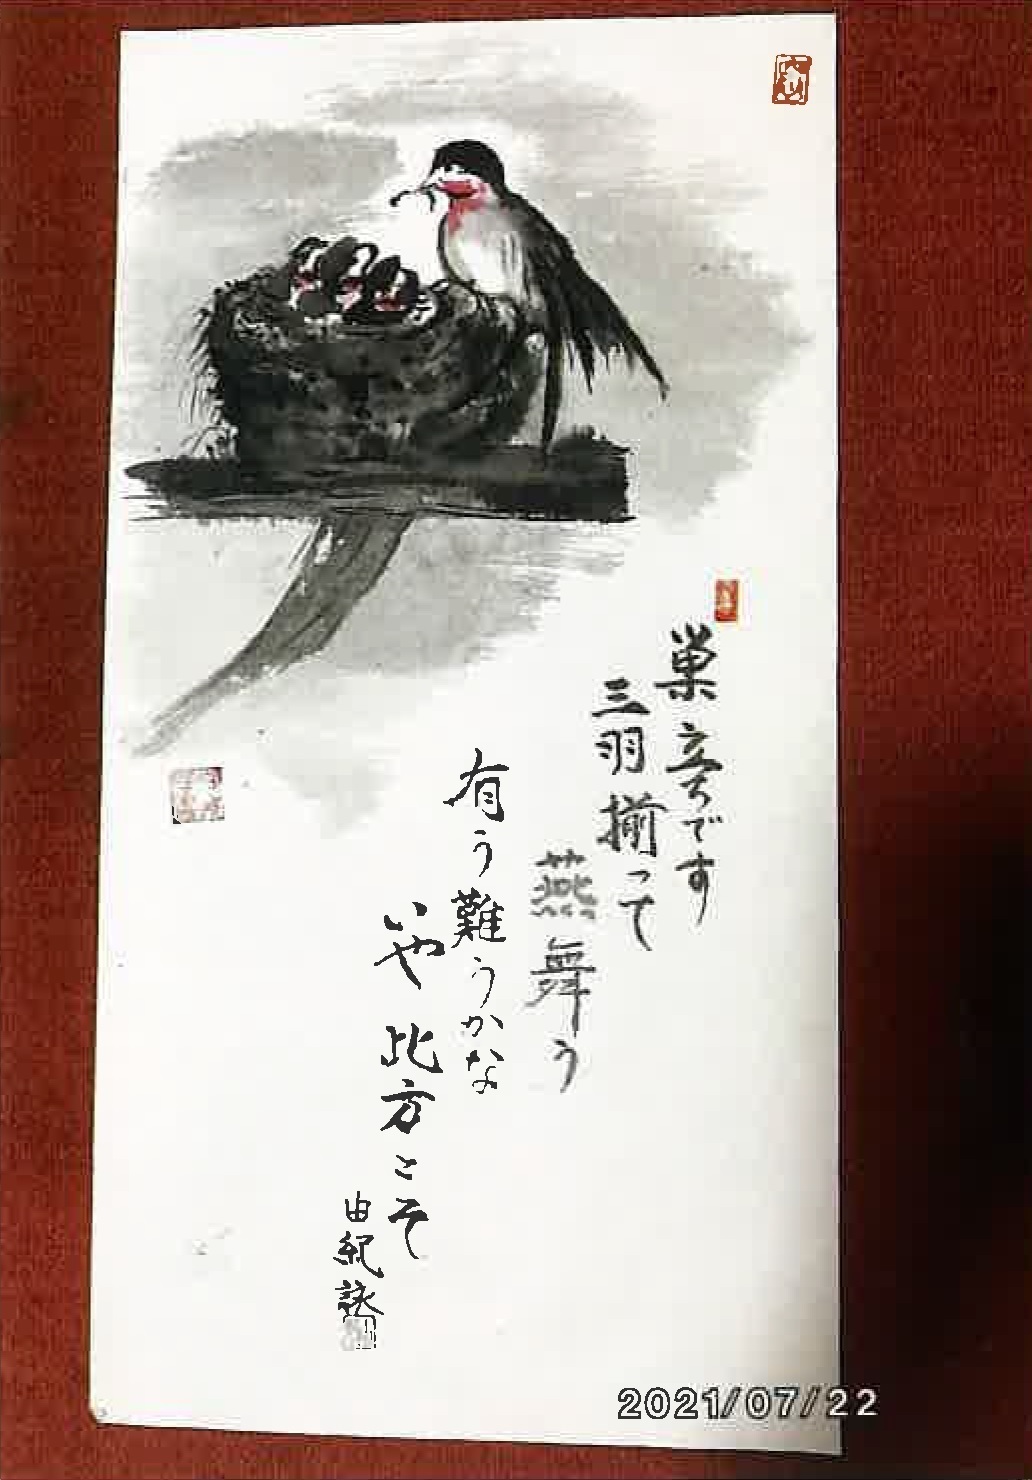 巣立ちです
三羽揃って
燕舞う
有う難うかな
いや比方こそ
由紀詠
2021/07/22